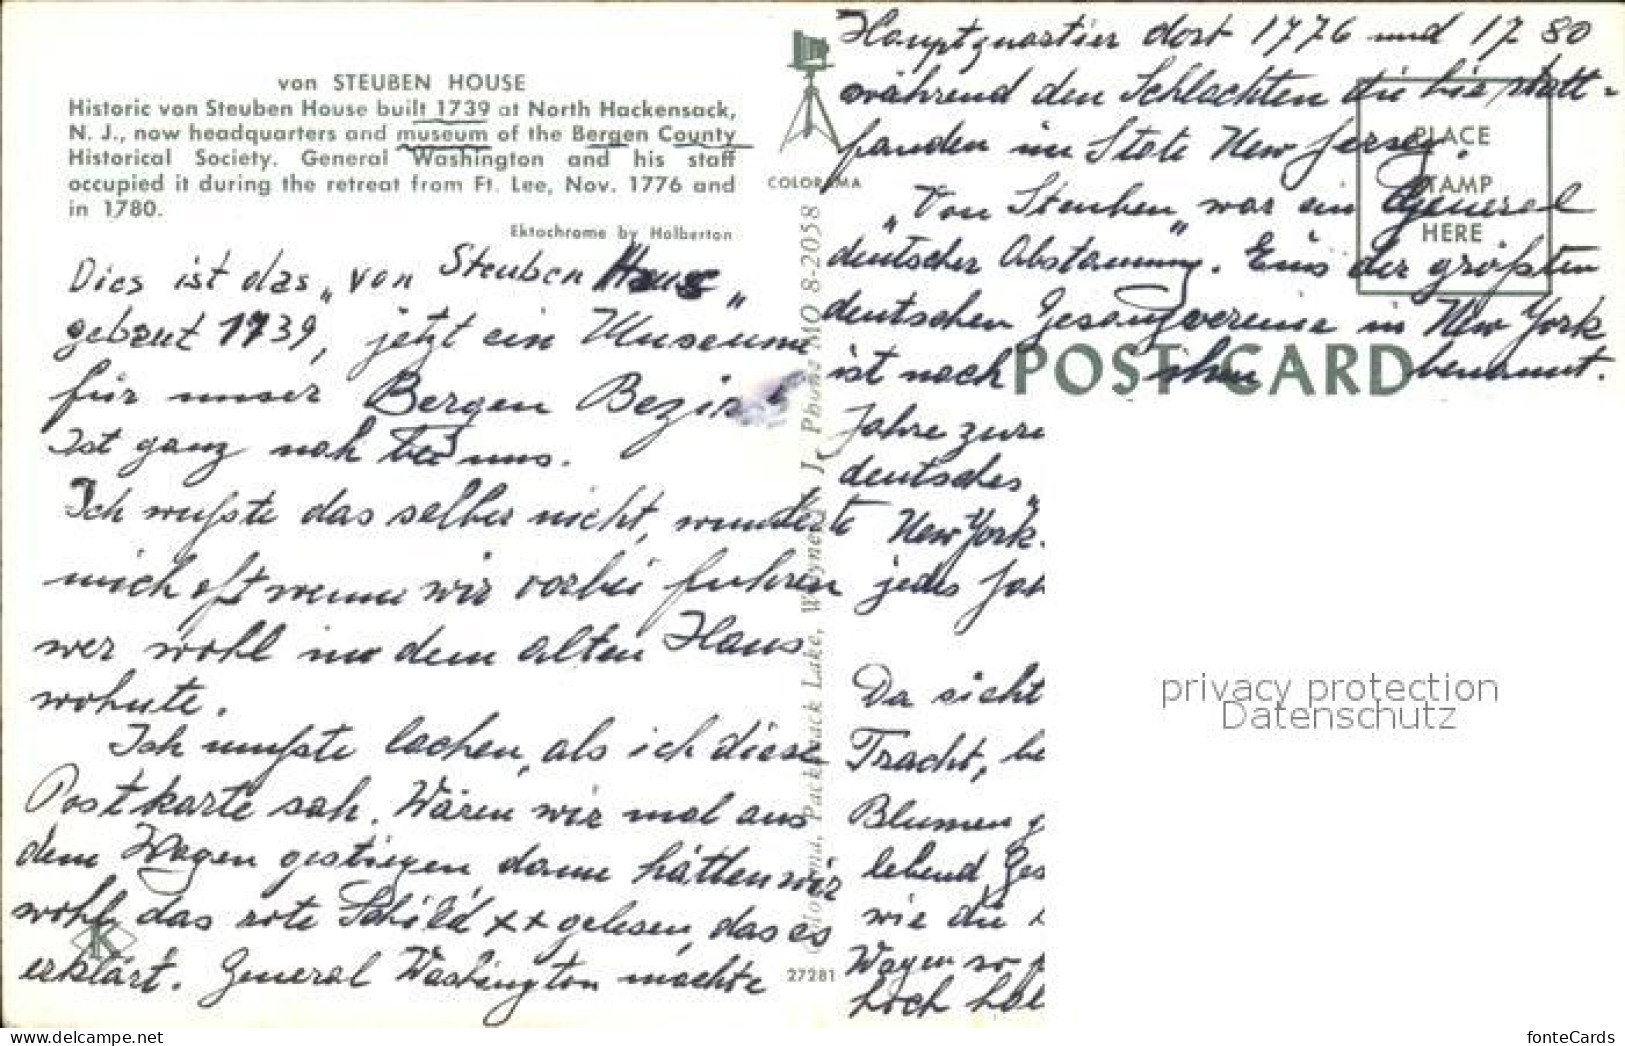 von STEUBEN HOUSE
Historic von Steuben House built 1739 at North Hackensack,
N. J., now headquarters and museum of the Bergen County
Historical Society. General Washington and his staff
occupied it during the retreat from Ft. Lee, Nov. 1776 and
in 1780.
Ektochrome by Halberton
Dies ist das „von Steuben Haus„
gebaut 1739, jetzt ein Museum
für unser Bergen Bezirk
Ist ganz nah bei uns.
Ich wußte das selber nicht, wunderte
mich oft wenn wir vorbei fuhren
wer wohl in dem alten Haus
wohnte.
Ich mußte lachen, als ich diese
Postkarte sah. Wären wir mal aus
dem Wagen gestiegen dann hätten wir
wohl das rote Schild ×× gelesen, das es
erklärt. General Washington machte
K
COLORAMA
Colorama, Packanack Lake, Wayne, N. J., Phone MO 8-2058
27281
Hauptquartier dort 1776 und 1780
während den Schlachten die hie statt-
fanden im State New Jersey.
„Von Steuben„ war ein General
deutscher Abstammung. Eins der größten
deutschen Gesangvereine in New York
ist nach ihm benannt.
PLACE
STAMP
HERE
POST CARD
Jahre zurü
deutsches„
New York.
jedes Jah
Da sieht
Tracht, be
Blumen g
lebend Ges
wie die
Wagen so
hoch
privacy protection
Datenschutz
www.delcampe.net
fonteCards